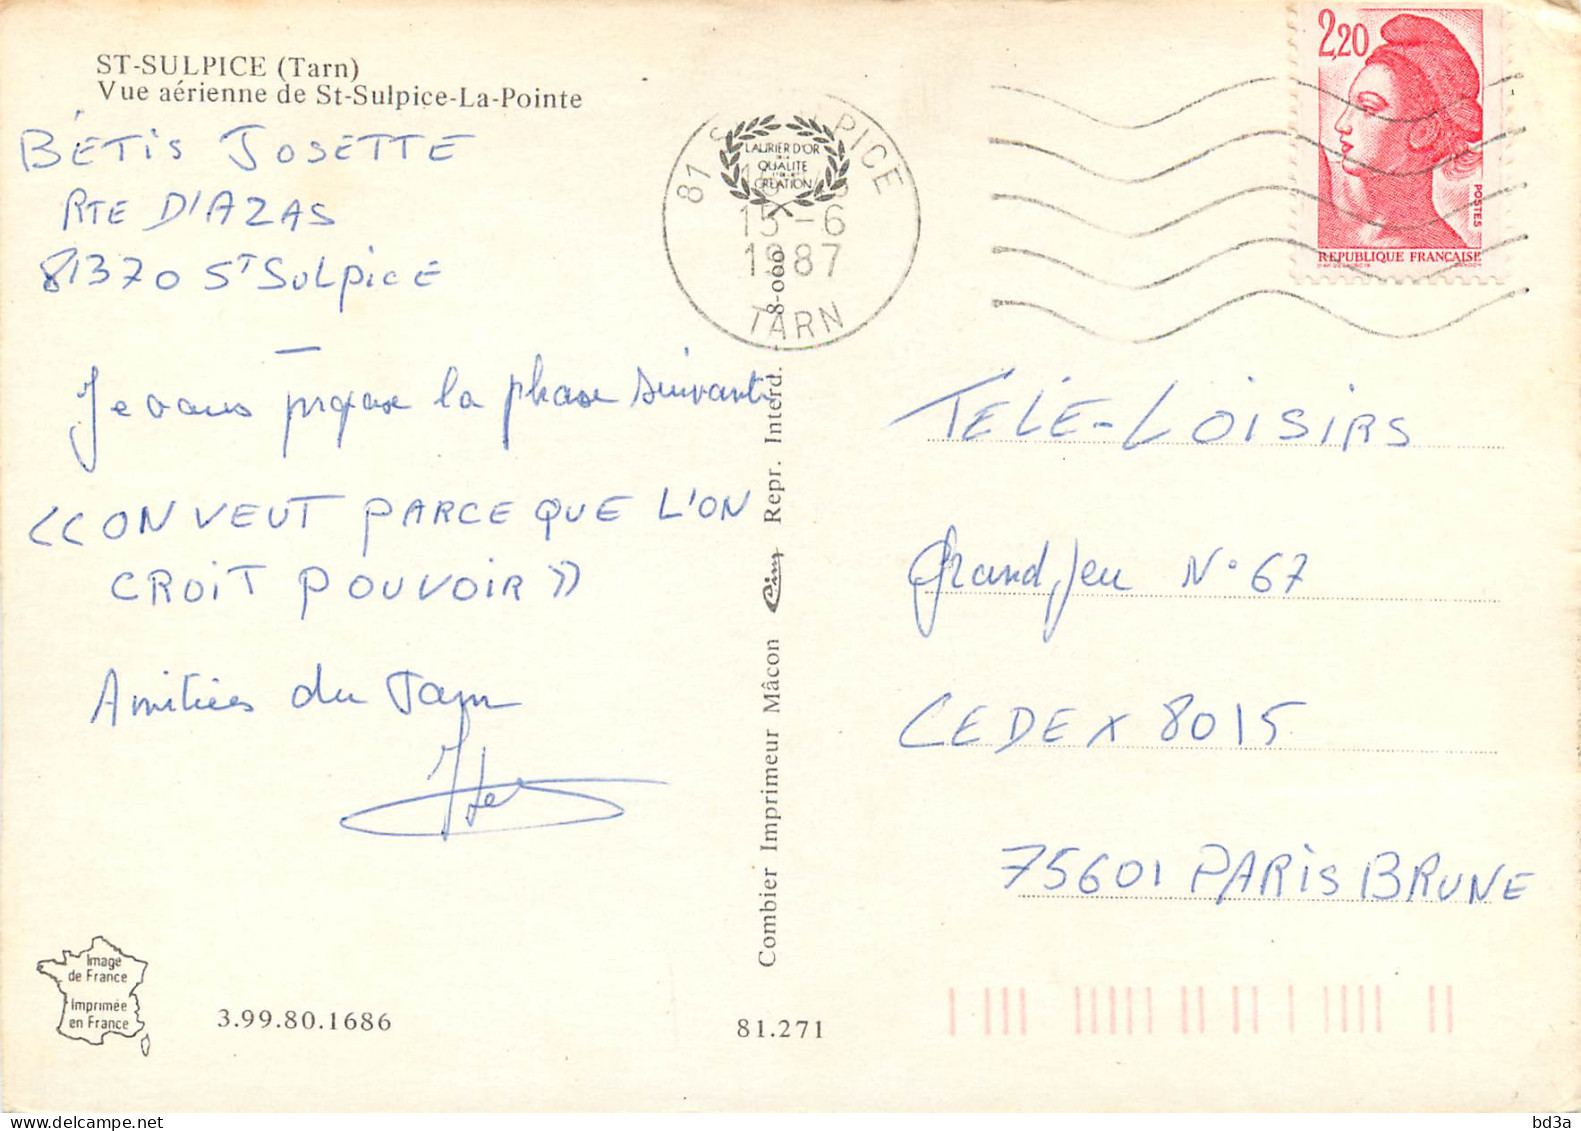 ST-SULPICE (Tarn)
Vue aérienne de St-Sulpice-La-Pointe
BÉTIS JOSETTE
RTE D'AZAS
81370 ST SULPICE
Je vous propose la phase suivante
<<ON VEUT PARCE QUE L'ON
CROIT POUVOIR>>
Amitiés du Tarn
Image
de France
Imprimée
en France
3.99.80.1686
81.271
Combier Imprimeur Mâcon Cim Repr. Interd. 8-000
LAURIER D'OR
QUALITE
CREATION
15-6
1987
TARN
2,20
POSTES
REPUBLIQUE FRANÇAISE
TÉLÉ-LOISIRS
Grand Jeu N° 67
CEDEX 8015
75601 PARIS BRUNE
www.delcampe.net
bd3a